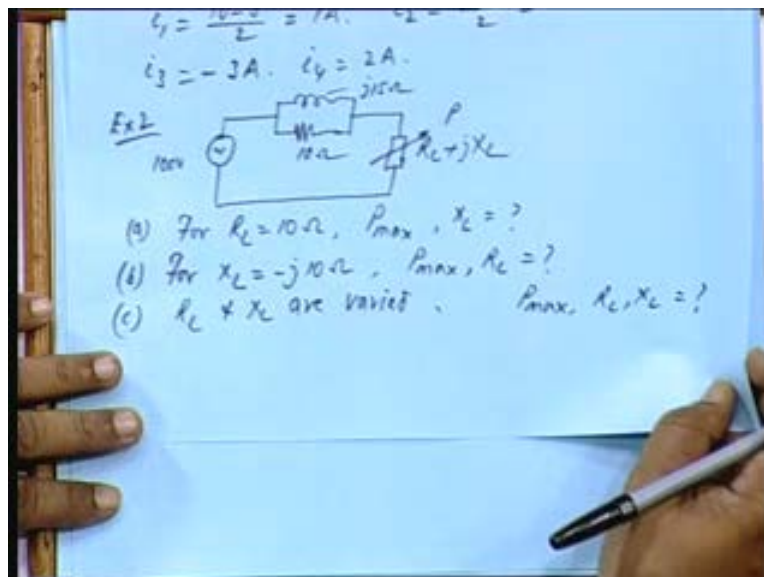 i₁ = = 1A.
i₃ = - 3A. i₄ = 2A.
j15Ω
Ex 2
P
100v
10Ω
R_L + jX_L
(a) For R_L = 10Ω, P_max, X_L = ?
(b) For X_L = -j10Ω, P_max, R_L = ?
(c) R_L & X_L are varied. P_max, R_L, X_L = ?